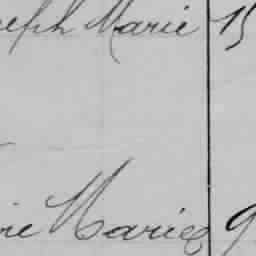 seph Marie 15
ine Marie 9